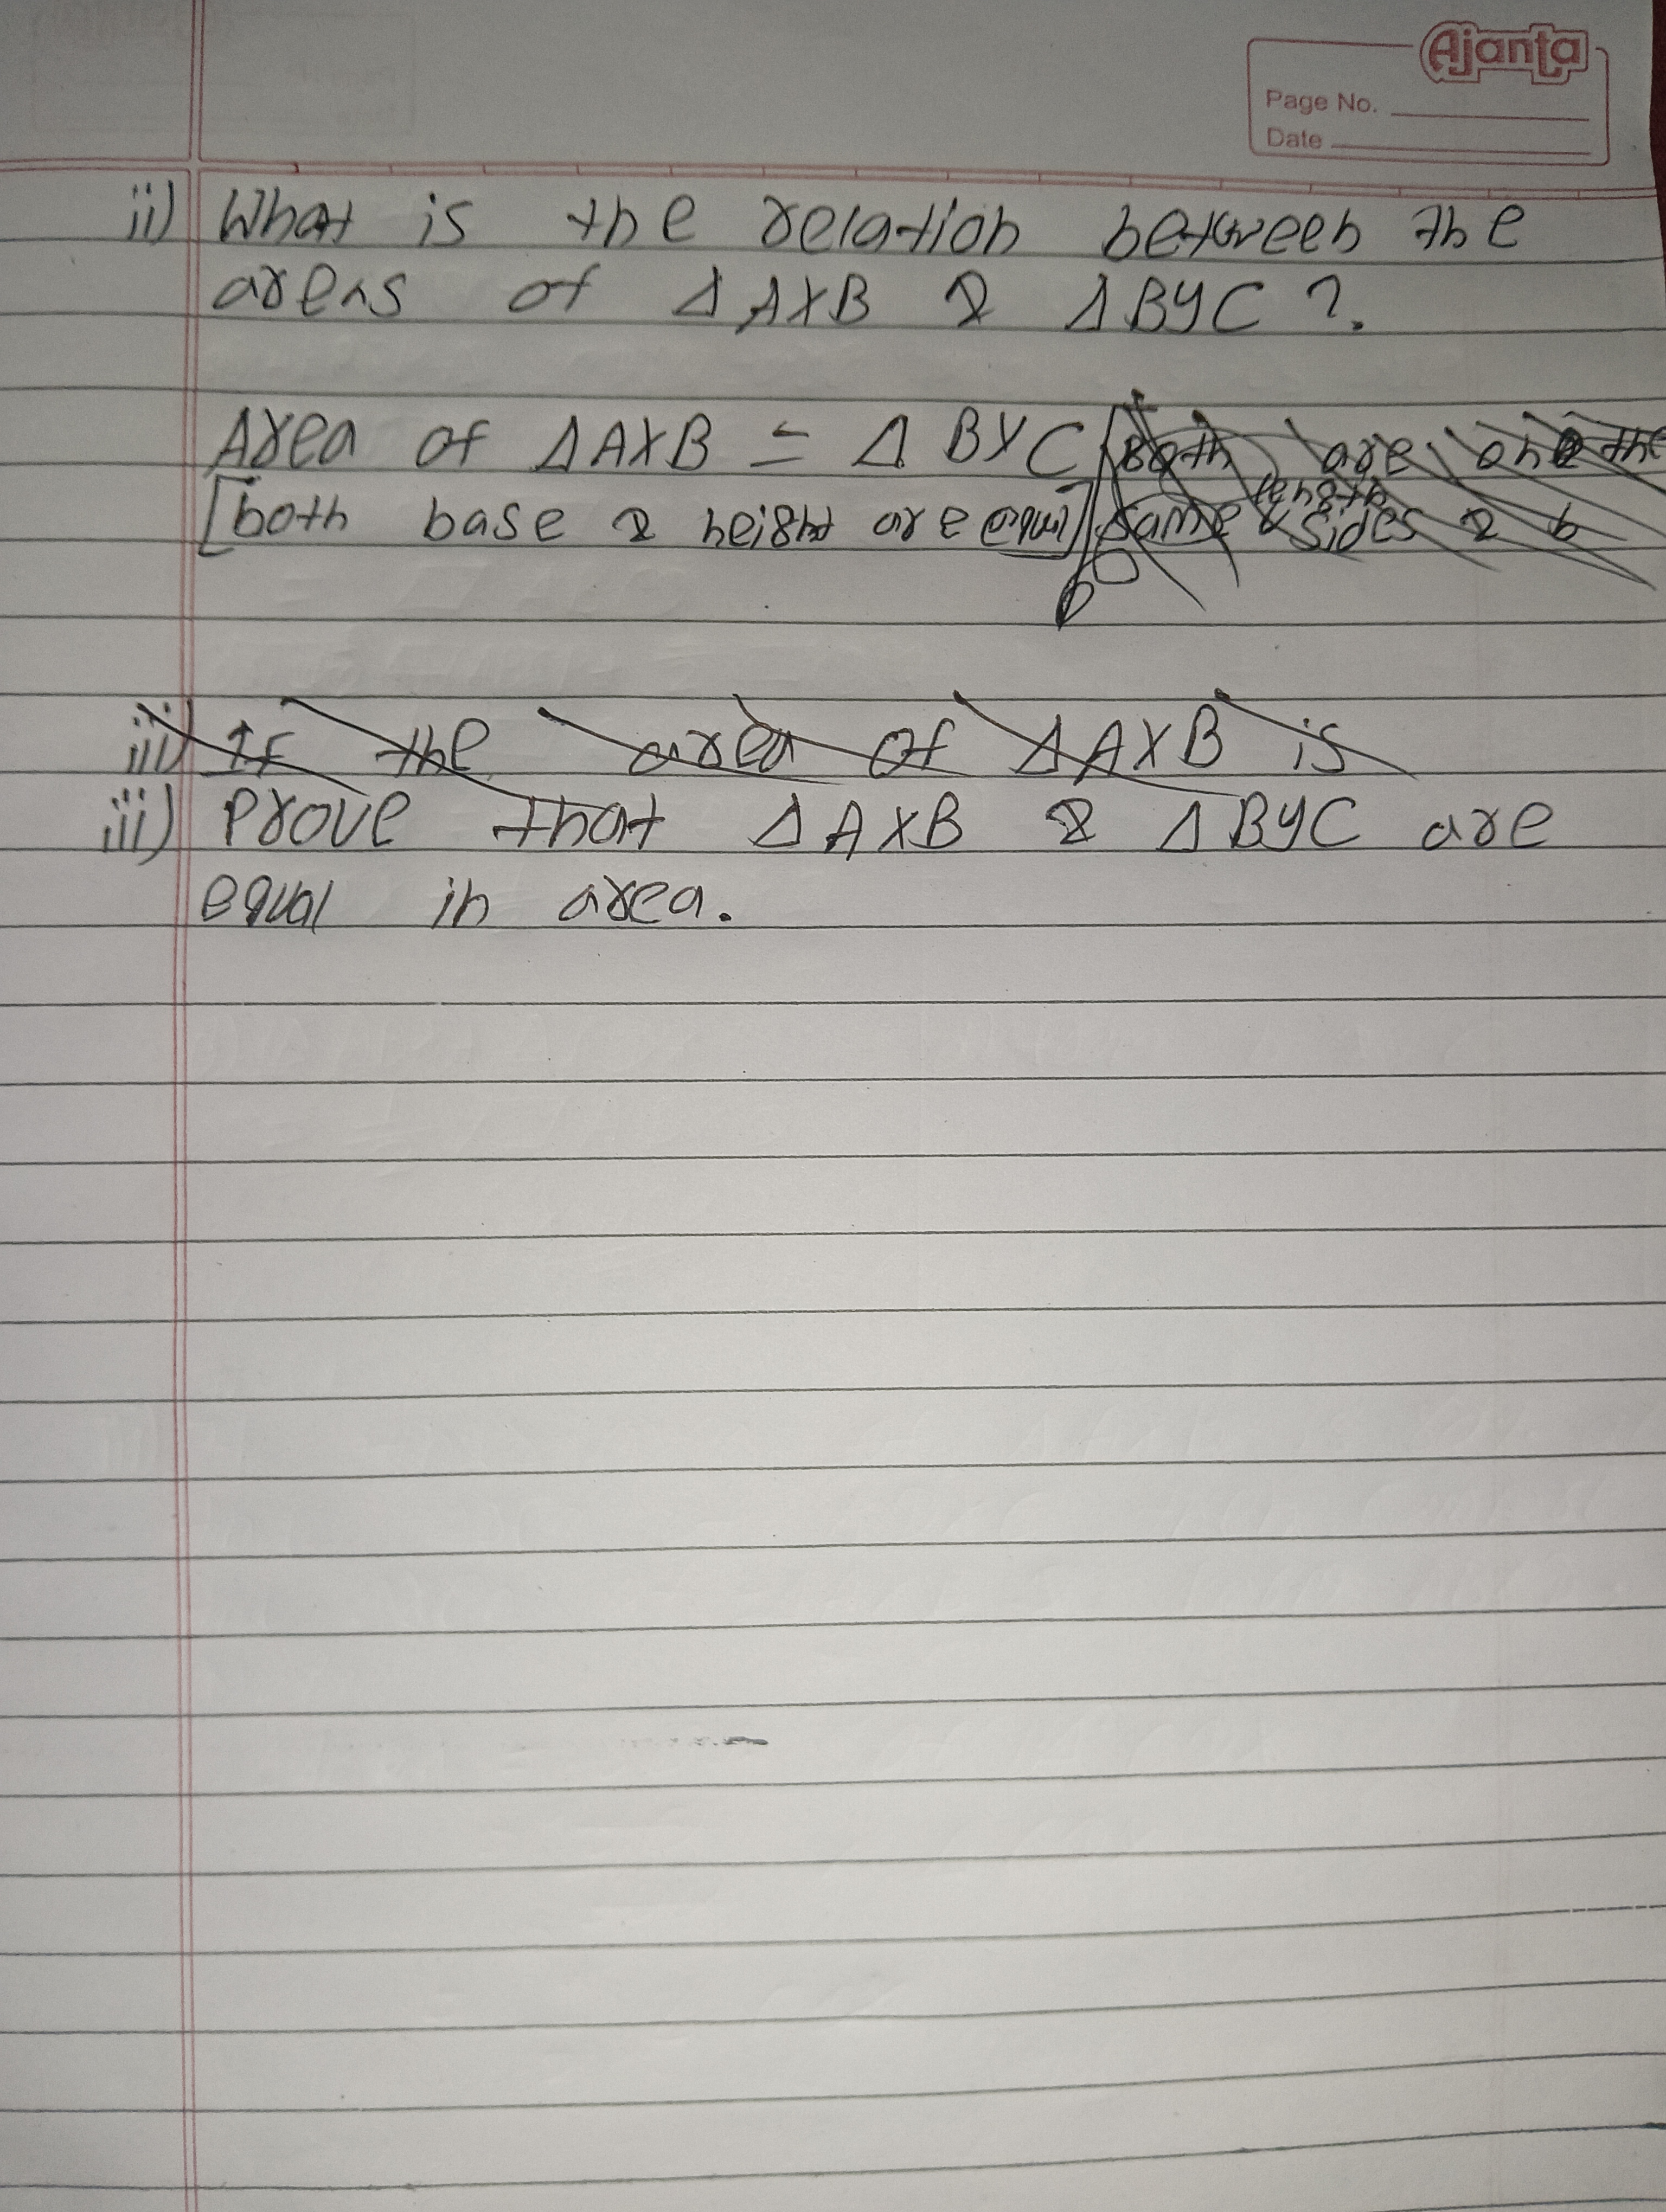 Ajanta
Page No.
Date
ii) What is the relation between the
areas of Δ AXB & Δ BYC ?
Area of ΔAXB = Δ BYC [Both are on the
[both base & height are equal] same length sides & b
iii) If the area of ΔAXB is
iii) Prove that ΔAXB & ΔBYC are
equal in area.